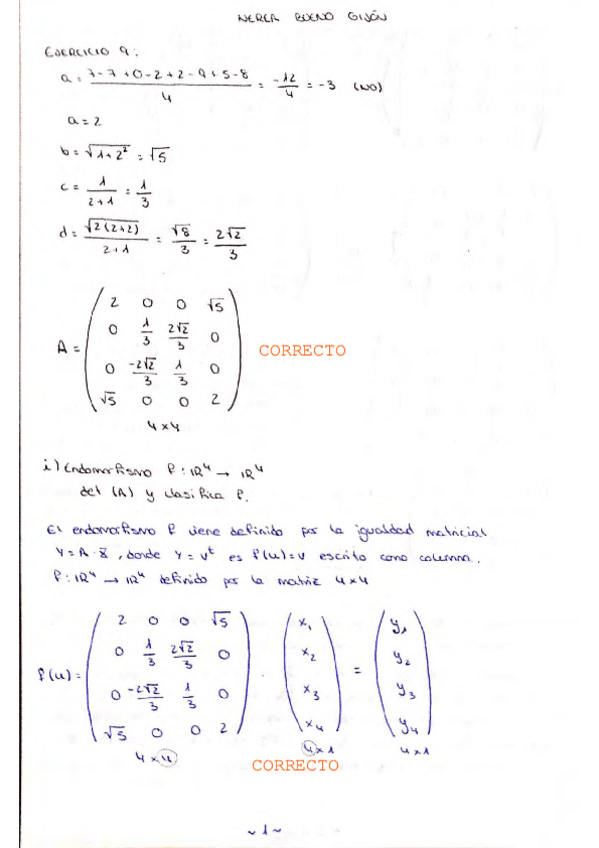 NEREA BUENO GIJÓN
EJERCICIO 9:
a = (7-7+0-2+2-9+5-8)/4 = -12/4 = -3 (NO)
a = 2
b = √(1+2²) = √5
c = 1/(2+1) = 1/3
d = √(2(2+2))/(2+1) = √8/3 = 2√2/3
2 0 0 √5
0 1/3 2√2/3 0
A =
CORRECTO
0 -2√2/3 1/3 0
√5 0 0 2
4x4
i) Endomorfismo f: ℝ⁴ → ℝ⁴
del (A) y clasifica f.
El endomorfismo f viene definido por la igualdad matricial
Y = A · X, donde Y = vᵗ es f(u)=v escrito como columna.
f: ℝ⁴ → ℝ⁴ definido por la matriz 4x4
2 0 0 √5 x₁ y₁
0 1/3 2√2/3 0 x₂ y₂
f(u) = =
0 -2√2/3 1/3 0 x₃ y₃
√5 0 0 2 x₄ y₄
4x4 4x1 4x1
CORRECTO
~1~